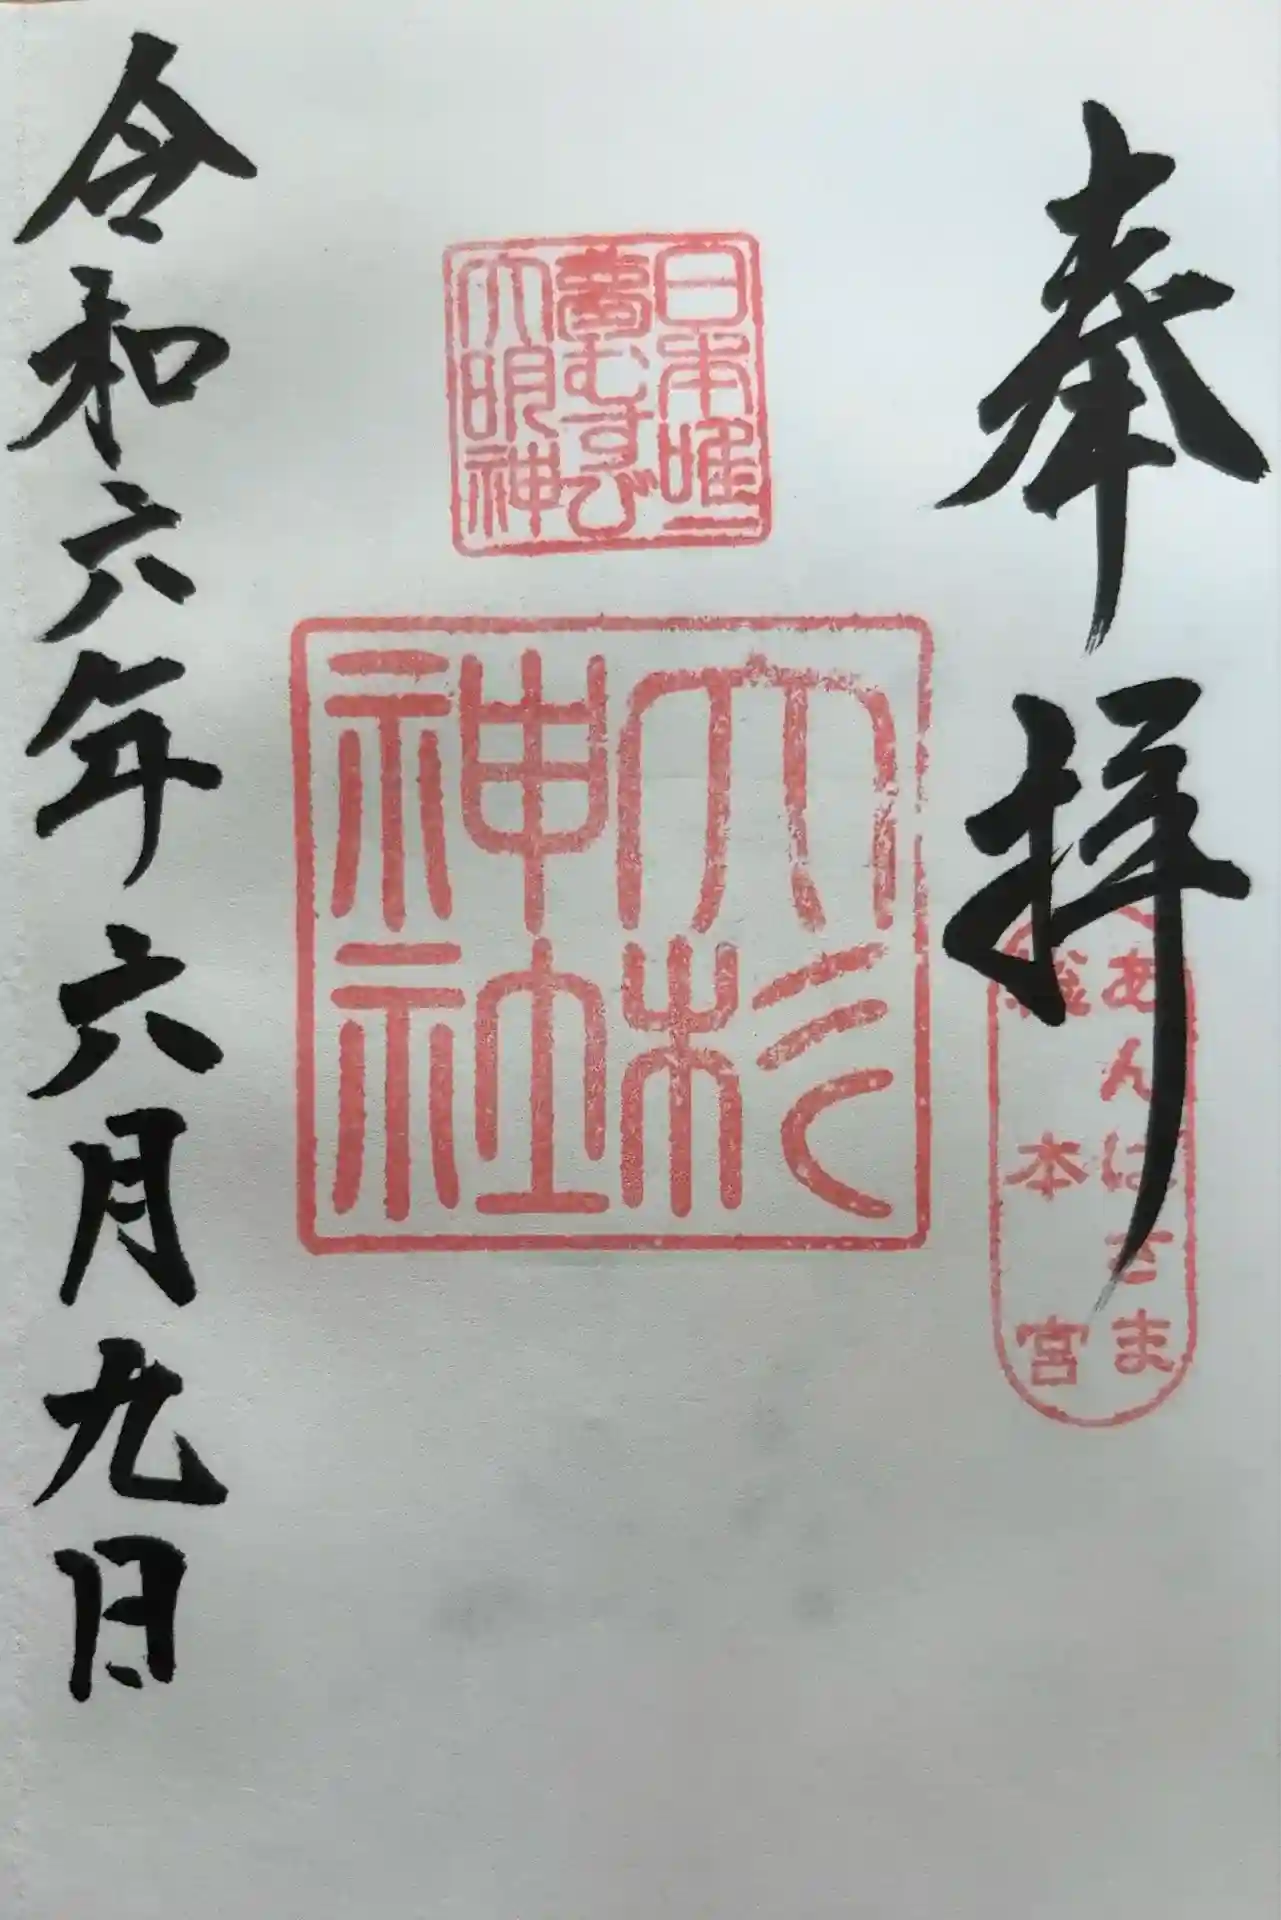 奉拝
あんばさま
総本宮
日本唯一
夢むすび
大明神
大杉
神社
令和六年六月九日